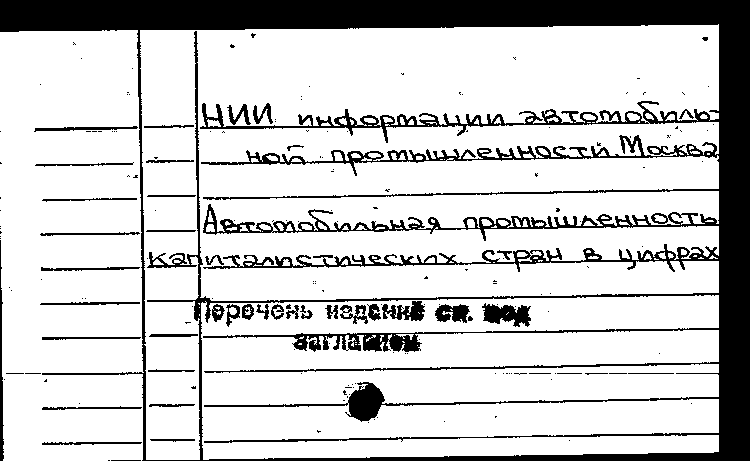 НИИ информации автомобиль-
ной промышленности. Москва
Автомобильная промышленность
капиталистических стран в цифрах
Перечень изданий см. под
заглавием